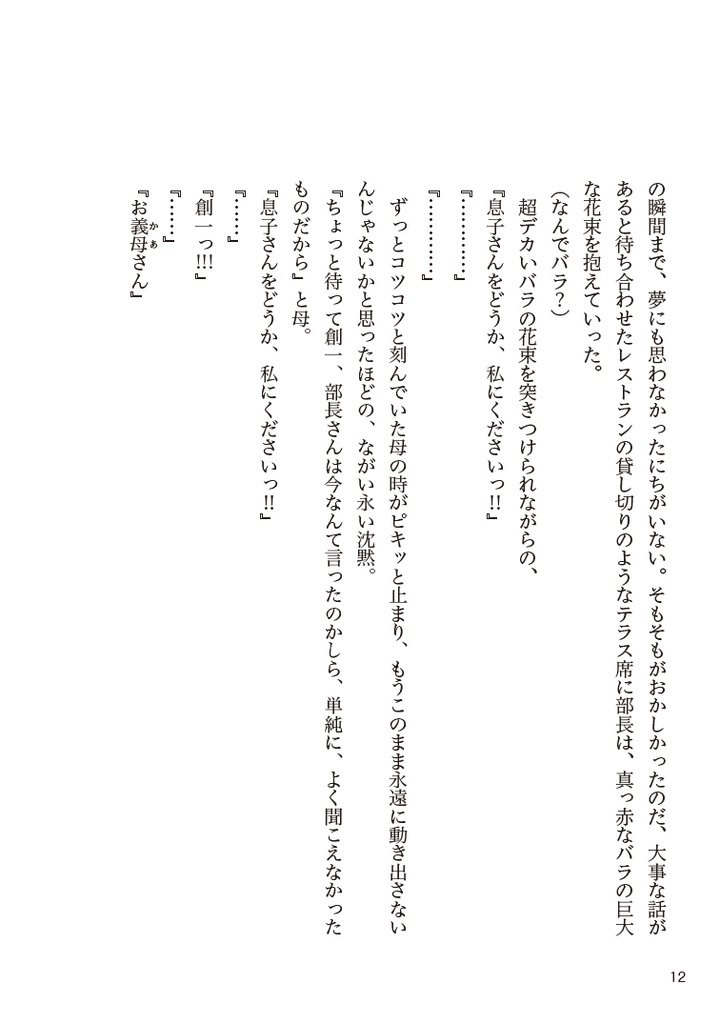 の瞬間まで、夢にも思わなかったにちがいない。そもそもがおかしかったのだ、大事な話が
あると待ち合わせたレストランの貸し切りのようなテラス席に部長は、真っ赤なバラの巨大
な花束を抱えていった。
（なんでバラ？）
　超デカいバラの花束を突きつけられながらの、
『息子さんをどうか、私にくださいっ!!』
『…………』
『…………』
　ずっとコツコツと刻んでいた母の時がピキッと止まり、もうこのまま永遠に動き出さない
んじゃないかと思ったほどの、ながい永い沈黙。
『ちょっと待って創一、部長さんは今なんて言ったのかしら、単純に、よく聞こえなかった
ものだから』と母。
『息子さんをどうか、私にくださいっ!!』
『……』
『創一っ!!!』
『……』
『お義母さん』
かあ
12